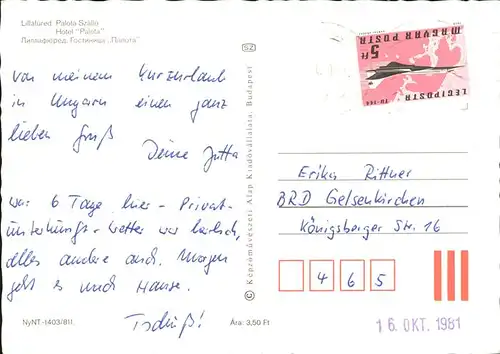 Lillafüred. Palota Szálló
Hotel "Palota"
Лиллафюред. Гостиница „Палота"
SZ
von meinem Kurzurlaub
in Ungarn einen ganz
lieben Gruß
Deine Jutta
war 6 Tage hier - Privat-
unterkunft - Wetter war herrlich,
alles andere auch. Morgen
geht es nach Hause.
Tschüß!
NyNT-1403/811.
Ára: 3,50 Ft
© Képzőművészeti Alap Kiadóvállalata, Budapest
5 Ft
MAGYAR POSTA
LÉGIPOSTA
TU-144
Erika Rittner
BRD Gelsenkirchen
Königsberger Str. 16
465
16. OKT. 1981